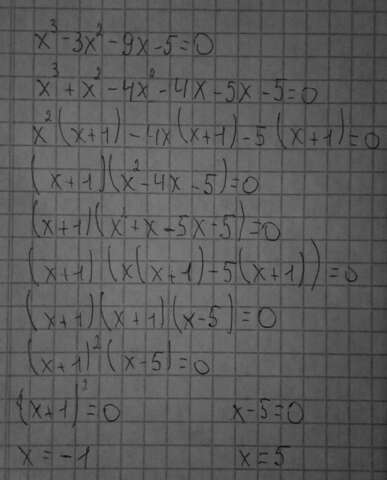 x³-3x²-9x-5=0
x³+x²-4x²-4x-5x-5=0
x²(x+1)-4x(x+1)-5(x+1)=0
(x+1)(x²-4x-5)=0
(x+1)(x²+x-5x-5)=0
(x+1)(x(x+1)-5(x+1))=0
(x+1)(x+1)(x-5)=0
(x+1)²(x-5)=0
(x+1)²=0 x-5=0
x=-1 x=5